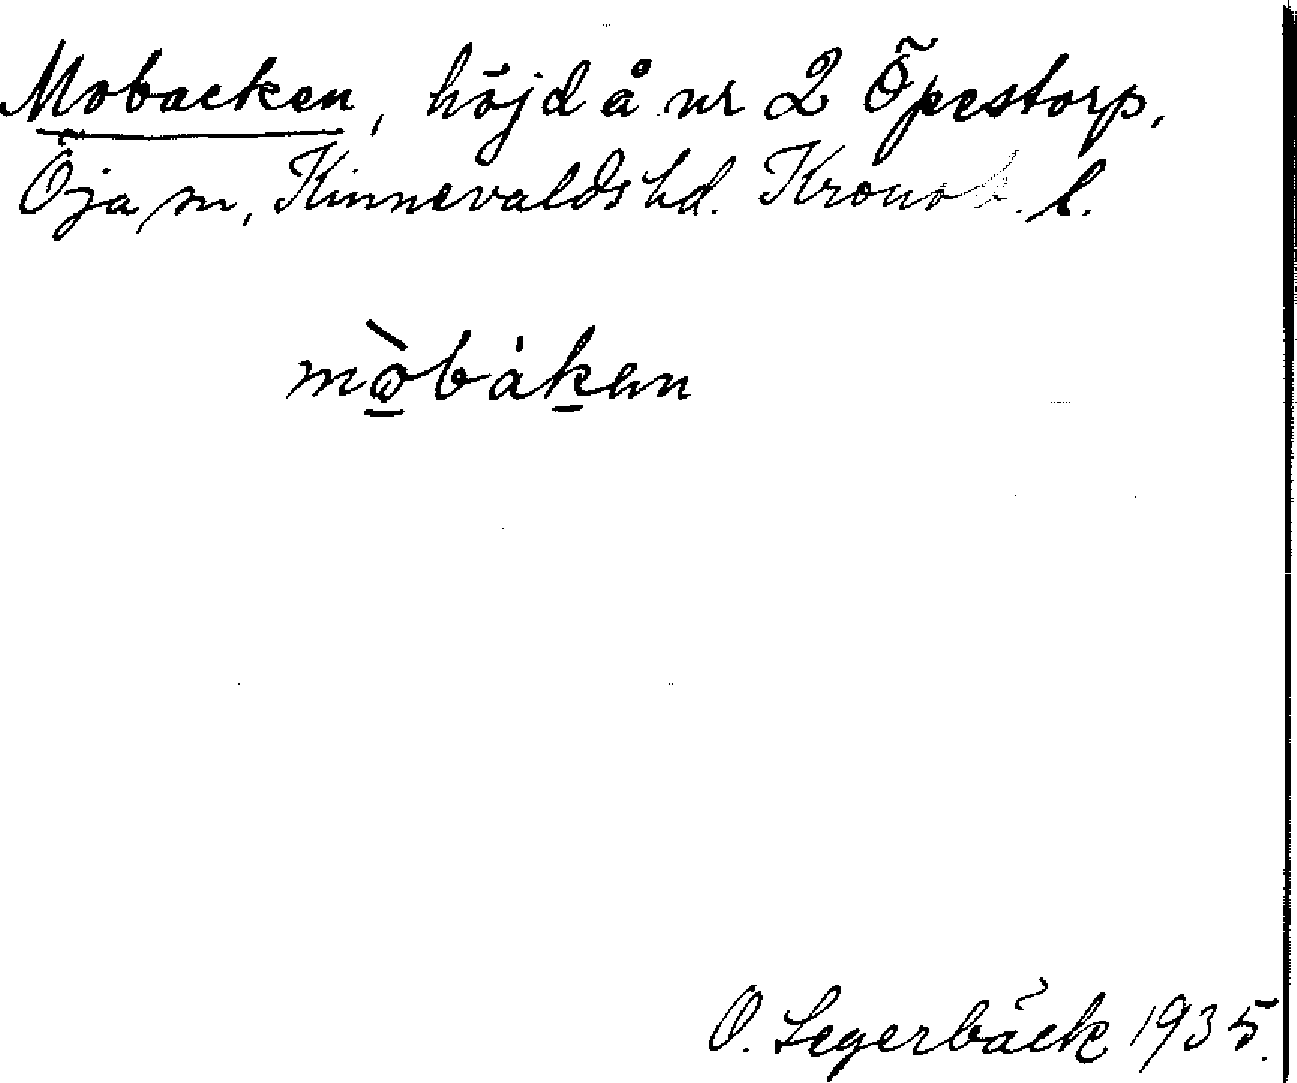 Mobacken, höjd å nr 2 Öpestorp,
Öja sn, Kinnevalds hd. Kronob. l.
mò̱bàḵen
O. Segerbäck 1935.